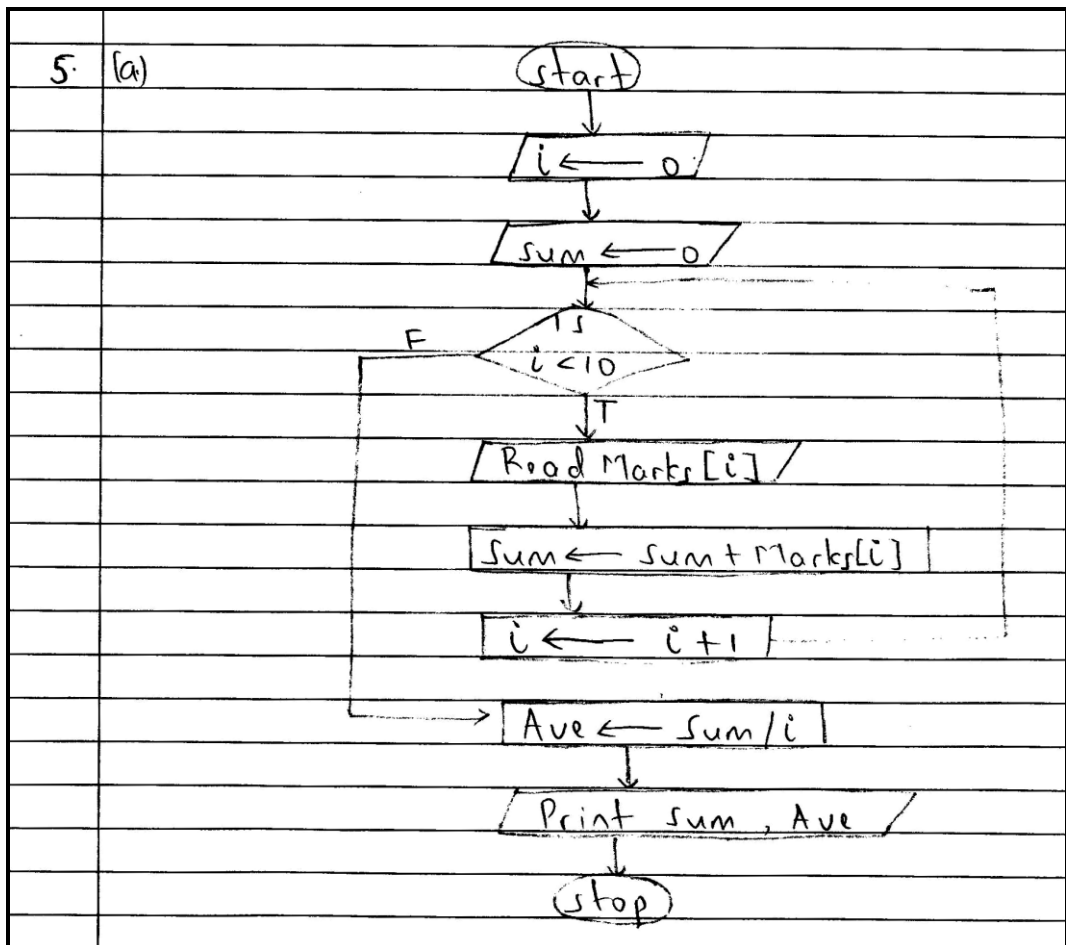 5. (a)
start
i ← 0
sum ← 0
Is
F
i < 10
T
Read Marks[i]
Sum ← sum + Marks[i]
i ← i + 1
Ave ← Sum / i
Print sum, Ave
stop